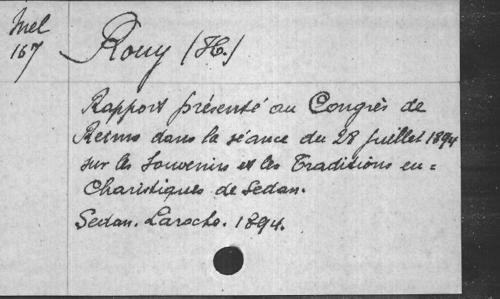 Mel
167
Rouy (H.)
Rapport présenté au Congrès de
Reims dans la séance du 28 juillet 1894
sur les Souvenirs et les Traditions eu=
charistiques de Sedan.
Sedan. Laroche. 1894.